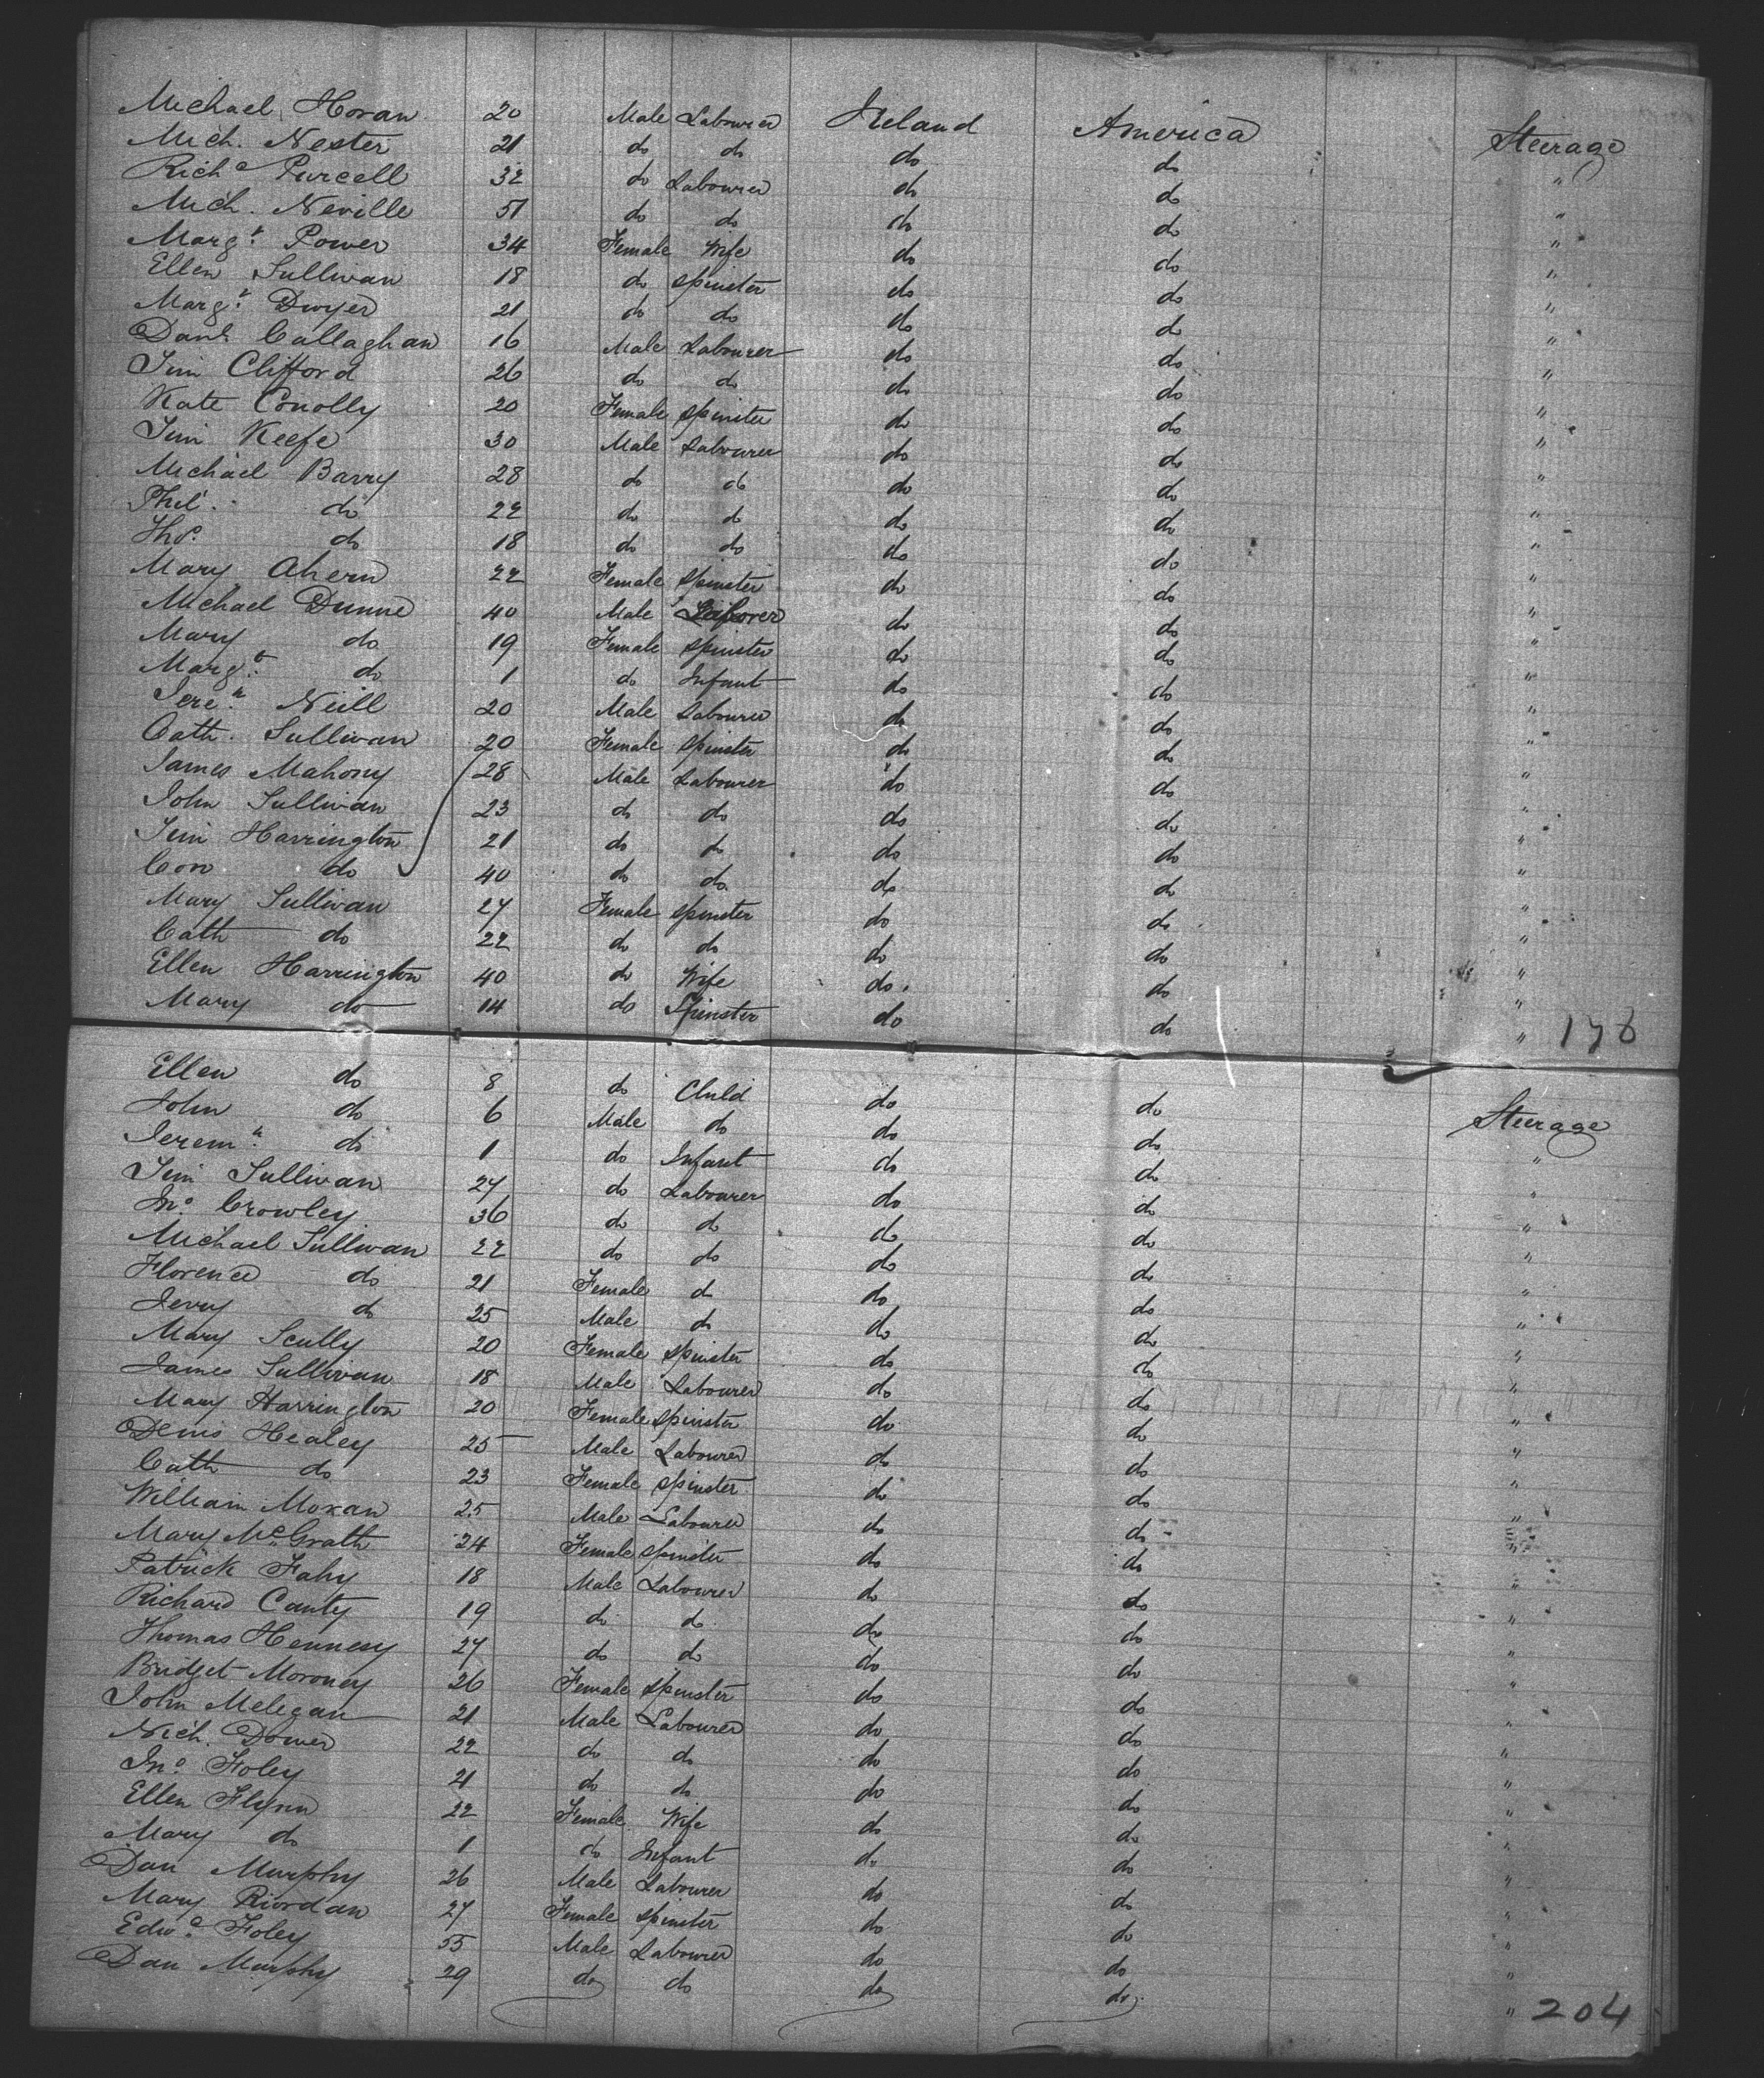 Michael Horan 20 Male Labourer Ireland America Steerage
Mich. Nester 21 do do do do "
Richd Purcell 32 do Labourer do do "
Mich. Neville 51 do do do do "
Margt. Power 34 Female Wife do do "
Ellen Sullivan 18 do Spinster do do "
Margt. Dwyer 21 do do do do "
Danl Callaghan 16 Male Labourer do do "
Tim Clifford 26 do do do do "
Kate Conolly 20 Female Spinster do do "
Tim Keefe 30 Male Labourer do do "
Michael Barry 28 do do do do "
Phil. do 22 do do do do "
Thos. do 18 do do do do "
Mary Ahern 22 Female Spinster do do "
Michael Dunne 40 Male do do "
Mary do 19 Female Spinster do do "
Margt. do 1 do Infant do do "
Jereh. Neill 20 Male Labourer do do "
Cath. Sullivan 20 Female Spinster do do "
James Mahony 28 Male Labourer do do "
John Sullivan 23 do do do do "
Tim Harrington 21 do do do do "
Con do 40 do do do do "
Mary Sullivan 27 Female Spinster do do "
Cath do 22 do do do do "
Ellen Harrington 40 do Wife do. do "
Mary do 14 do Spinster do do " 176
Ellen do 8 do Child do do Steerage
John do 6 Male do do do "
Jeremh. do 1 do Infant do do "
Tim Sullivan 27 do Labourer do do "
Jno. Crowley 36 do do do do "
Michael Sullivan 22 do do do do "
Florence do 21 Female do do do "
Jerry do 25 Male do do do "
Mary Scully 20 Female Spinster do do "
James Sullivan 18 Male Labourer do do "
Mary Harrington 20 Female Spinster do do "
Denis Healey 25 Male Labourer do do "
Cath do 23 Female Spinster do do "
William Moxan 25 Male Labourer do do "
Mary McGrath 24 Female Spinster do do "
Patrick Fahy 18 Male Labourer do do "
Richard Canty 19 do do do do "
Thomas Hennesy 27 do do do do "
Bridget Moroney 26 Female Spinster do do "
John Melegan 21 Male Labourer do do "
Nich. Dower 22 do do do do "
Jno. Foley 21 do do do do "
Ellen Flynn 22 Female Wife do do "
Mary do 1 do Infant do do "
Dan Murphy 26 Male Labourer do do "
Mary Riordan 27 Female Spinster do do "
Edwd. Foley 55 Male Labourer do do "
Dan Murphy 29 do do do do " 204